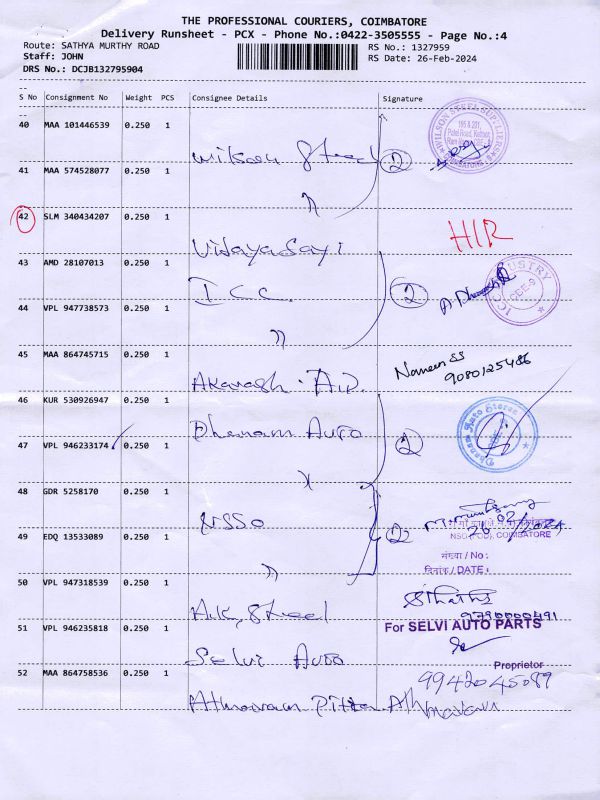 THE PROFESSIONAL COURIERS, COIMBATORE
Delivery Runsheet - PCX - Phone No.:0422-3505555 - Page No.:4
Route: SATHYA MURTHY ROAD
RS No.: 1327959
Staff: JOHN
RS Date: 26-Feb-2024
DRS No.: DCJB132795904
S No Consignment No Weight PCS Consignee Details Signature
40 MAA 101446539 0.250 1
Wilson Steel 2
41 MAA 574528077 0.250 1
"
42 SLM 340434207 0.250 1
Vijaya Sayi HIR
43 AMD 28107013 0.250 1
ICC 2
44 VPL 947738573 0.250 1
"
45 MAA 864745715 0.250 1
Akavash AID. Naveen SS
9080125486
46 KUR 530926947 0.250 1
Dhanam Auto 2
47 VPL 946233174 0.250 1
"
48 GDR 5258170 0.250 1
NSSO 2
NSO (FOD), COIMBATORE
49 EDQ 13533089 0.250 1
संख्या / No :
दिनांक / DATE :
"
50 VPL 947318539 0.250 1
A.K. Steel
9790000491
51 VPL 946235818 0.250 1
For SELVI AUTO PARTS
Selvi Auto
Proprietor
52 MAA 864758536 0.250 1
9942045089